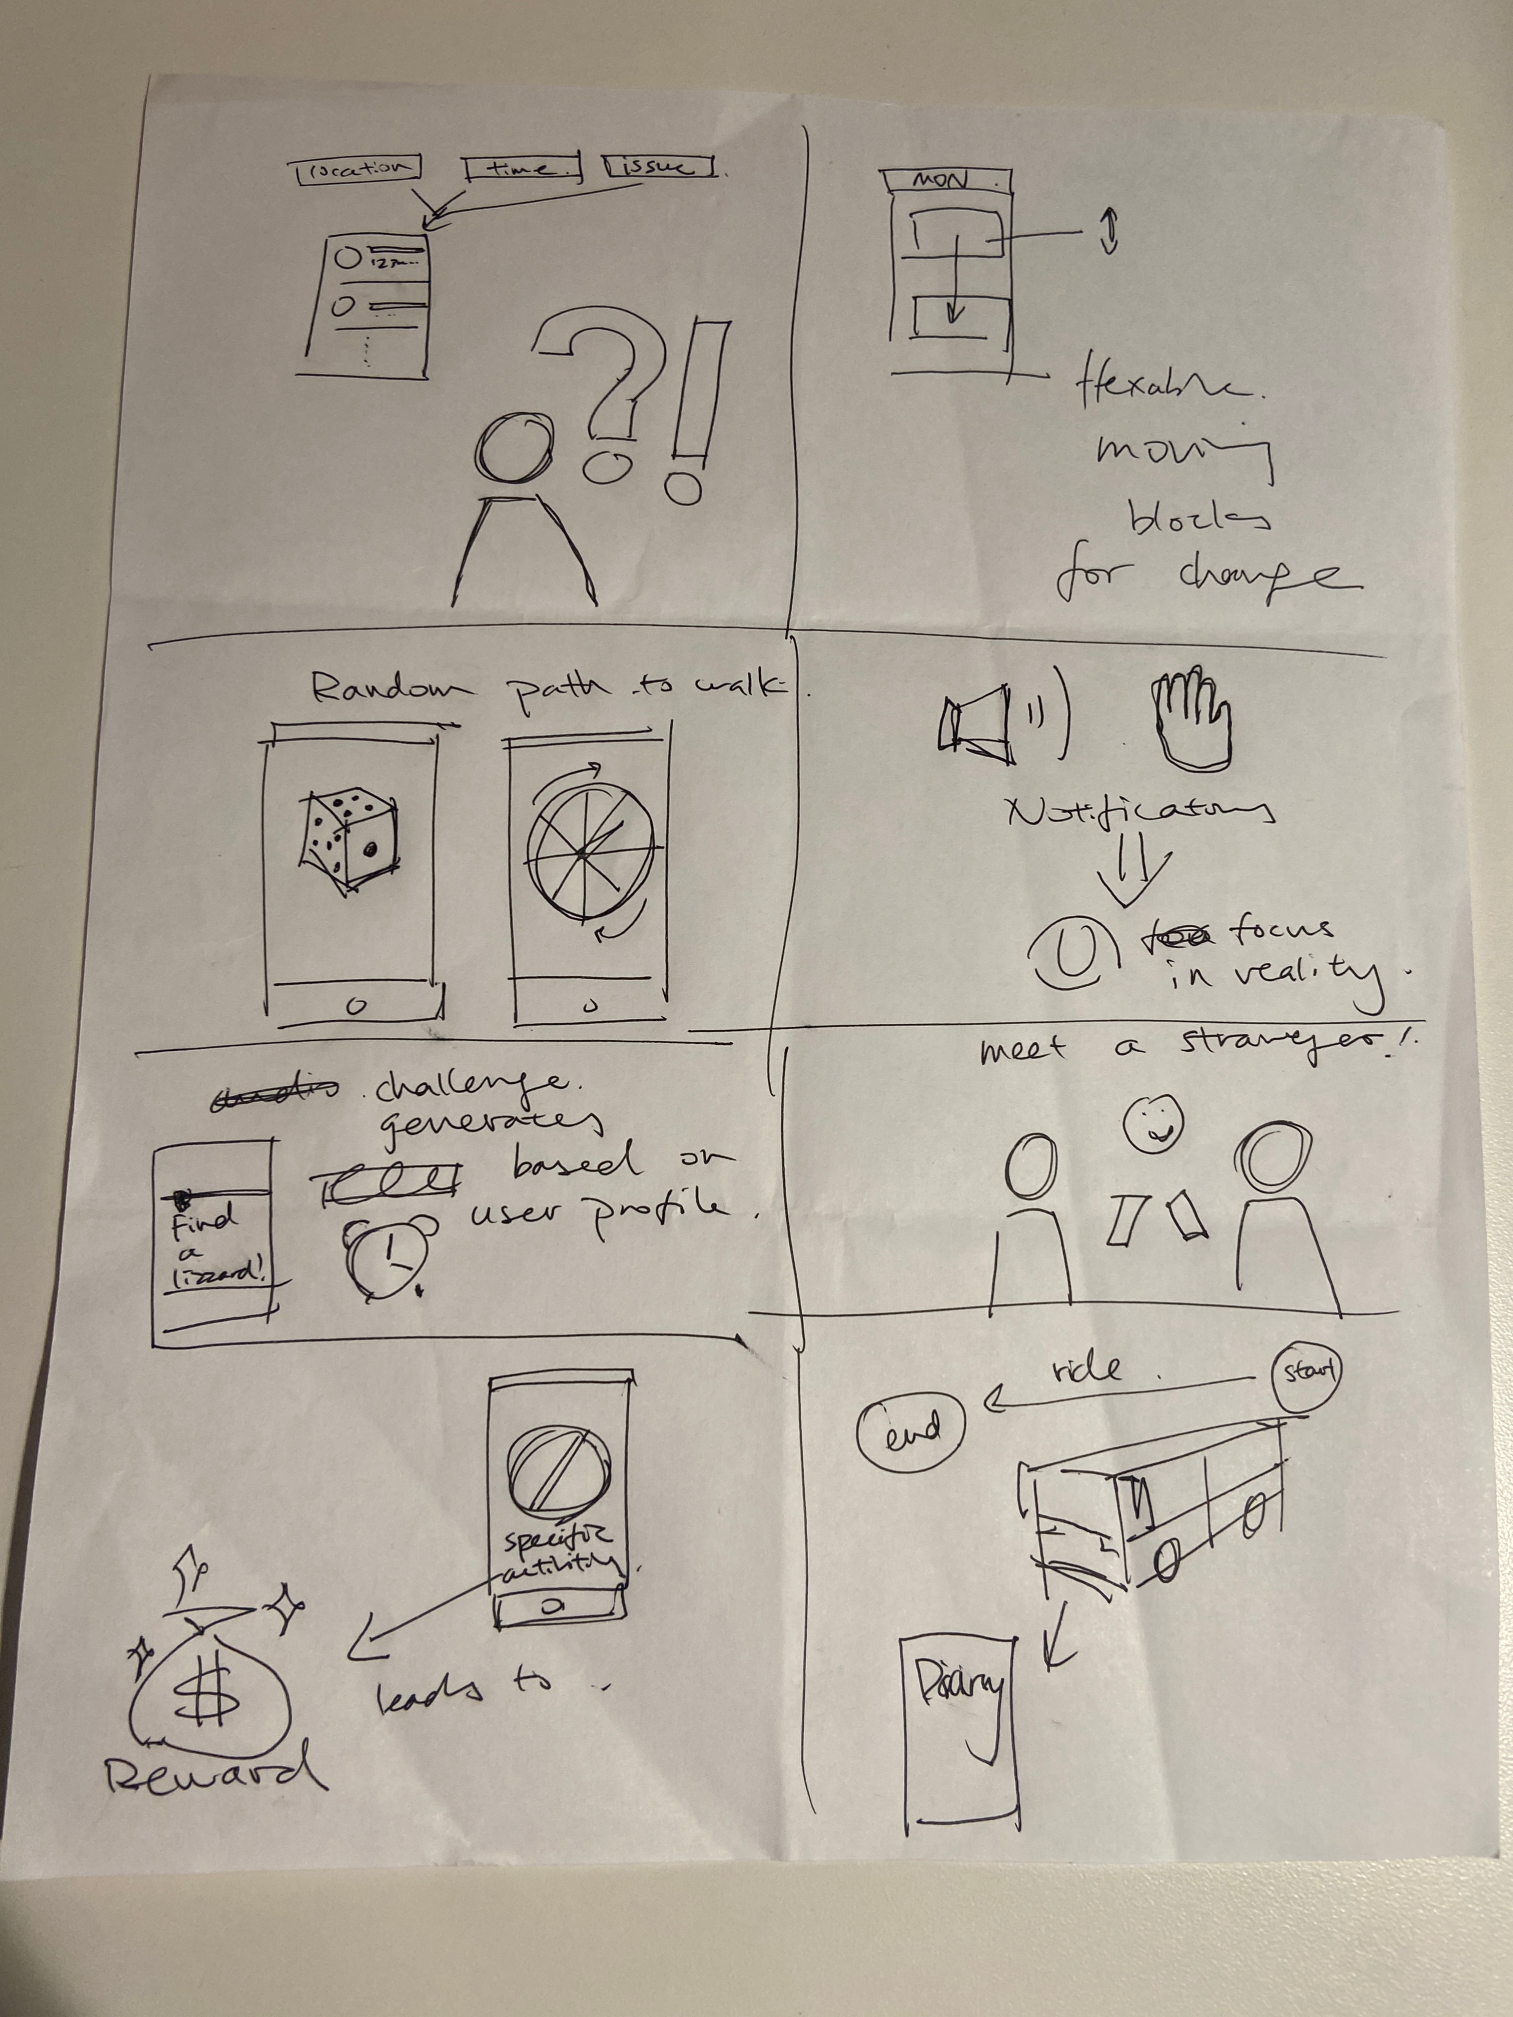 location
time.
issue.
123
MON.
flexable.
moving
blocks
for change
Random path to walk.
Notifications
focus
in reality.
challenge.
generates
based on
user profile.
Find
a
lizzard!
meet a stranger!
specific
activity.
leads to.
$
Reward
ride.
start
end
Diary